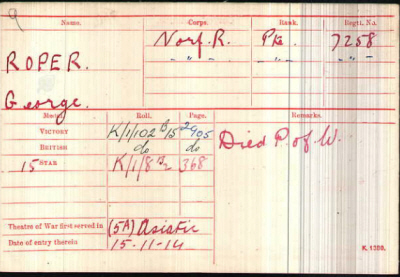 Name. Corps. Rank. Regtl. No.
Norf. R. Pte. 7258
ROPER. " " " " " "
George.
Medal. Roll. Page. Remarks.
VICTORY K/1/102 B15 2905 Died P. of W.
BRITISH do do
15 STAR K/1/8 B2 368
Theatre of War first served in (5A) Asiatic
Date of entry therein 15-11-14
K. 1380.